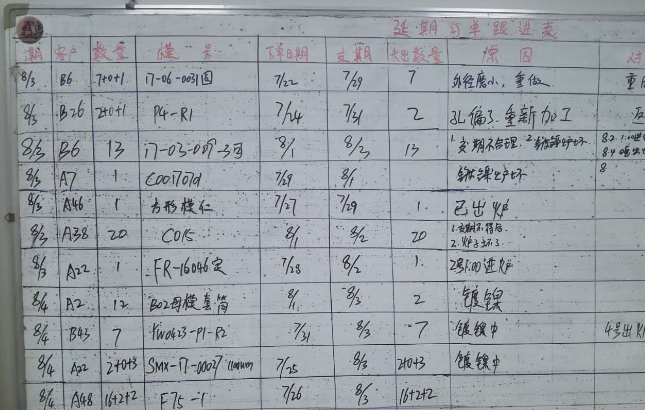 延期订单跟进表
期 客户 数量 模号 下单日期 交期 欠出数量 原因
8/3 B6 7+0+1 17-06-0031圆 7/22 7/29 7 外径磨小，重做
8/3 B26 2+0+1 P4-R1 7/24 7/31 2 孔偏了.重新加工
8/3 B6 13 17-03-007-3圆 8/1 8/2 13 1.交期不合理.2.
8/3 A7 1 C001701d 7/29 8/1 8
8/3 A46 1 方形模仁 7/27 7/29 1. 已出炉
8/3 A38 20 C015 8/1 8/2 20 1.交期不符合. 2.炉子坏了
8/3 A22 1 FR-16046定 7/28 8/2 1. 2号1:00进炉
8/4 A2 12 B02母模套筒 8/1 8/3 2 镀镍
8/4 B43 7 YW0423-P1-R2 7/31 8/3 7 镀镍中 4号出炉
8/4 A22 2+0+3 SMX-17-00027 7/25 8/3 2+0+3 镀镍中
8/4 A48 16+2+2 F75-1 7/26 8/3 16+2+2